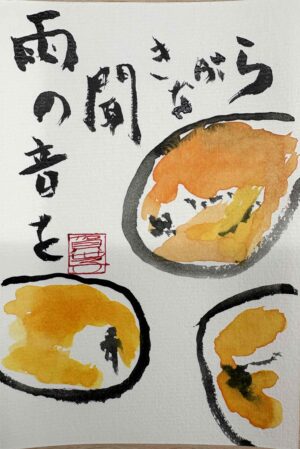 雨の音を
聞
きながら